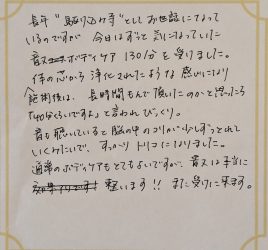 長年 "駆け込み寺" としてお世話になって
いるのですが 今日はずっと気になっていた
音叉ボディケア 130分 を受けました。
体の芯から浄化されたような感じになり
施術後は、長時間もんで頂いたのかと思ったら
"40分くらいですよ" と言われびっくり。
音も聴いていると脳の中のコリが少しずつとれて
いくみたいで、すっかりトリコになりました。
通常のボディケアもとてもよいですが、音叉は本当に
整います!! また受けに来ます。